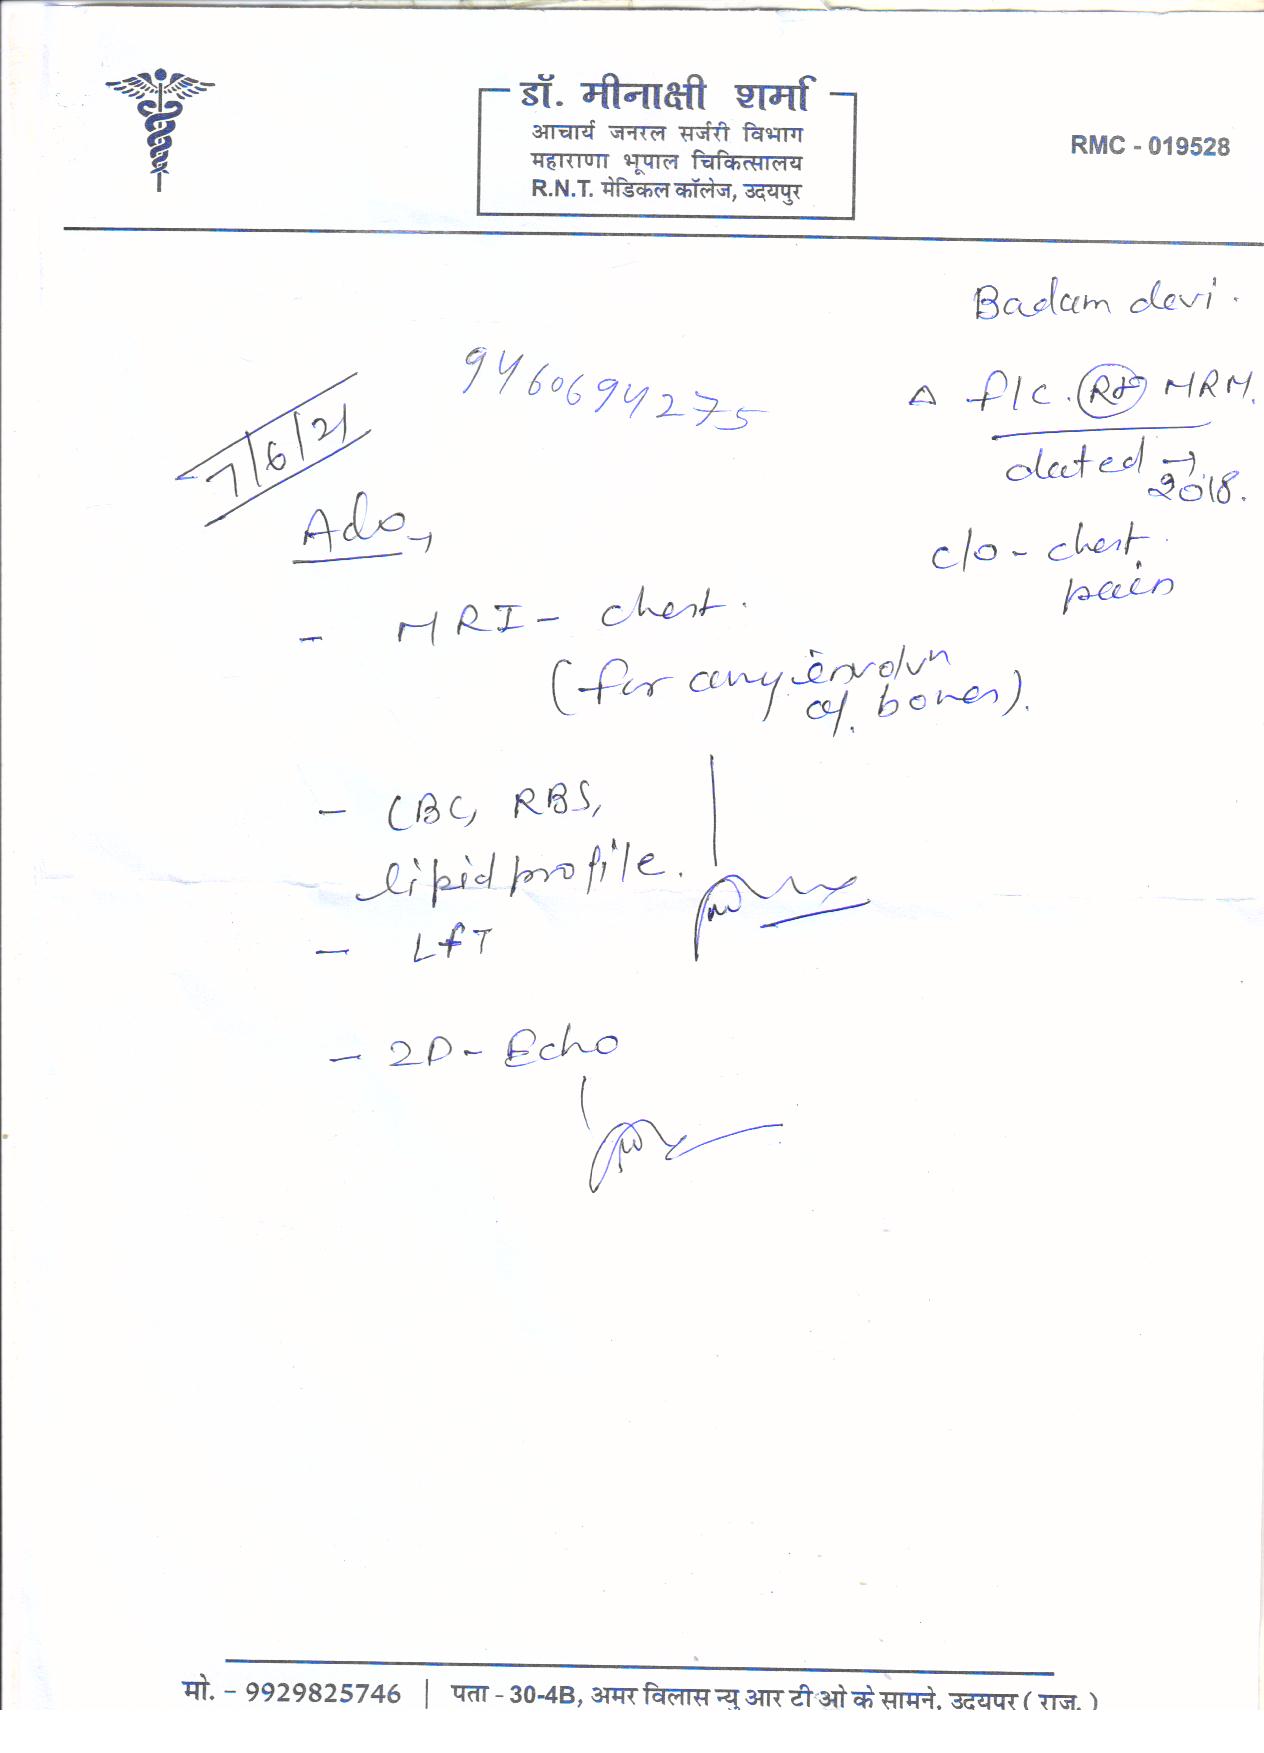 डॉ. मीनाक्षी शर्मा
आचार्य जनरल सर्जरी विभाग
महाराणा भूपाल चिकित्सालय
R.N.T. मेडिकल कॉलेज, उदयपुर
RMC - 019528
Badam devi.
9460694275
Δ f/c. Rt MRM.
dated → 2018.
7/6/21
Ado,
c/o - chest pain
- MRI - chest.
(for any involvn
of bones).
- CBC, RBS,
lipid profile.
- LfT
- 2D - Echo
मो. - 9929825746 | पता - 30-4B, अमर विलास न्यु आर टी ओ के सामने, उदयपुर ( राज. )